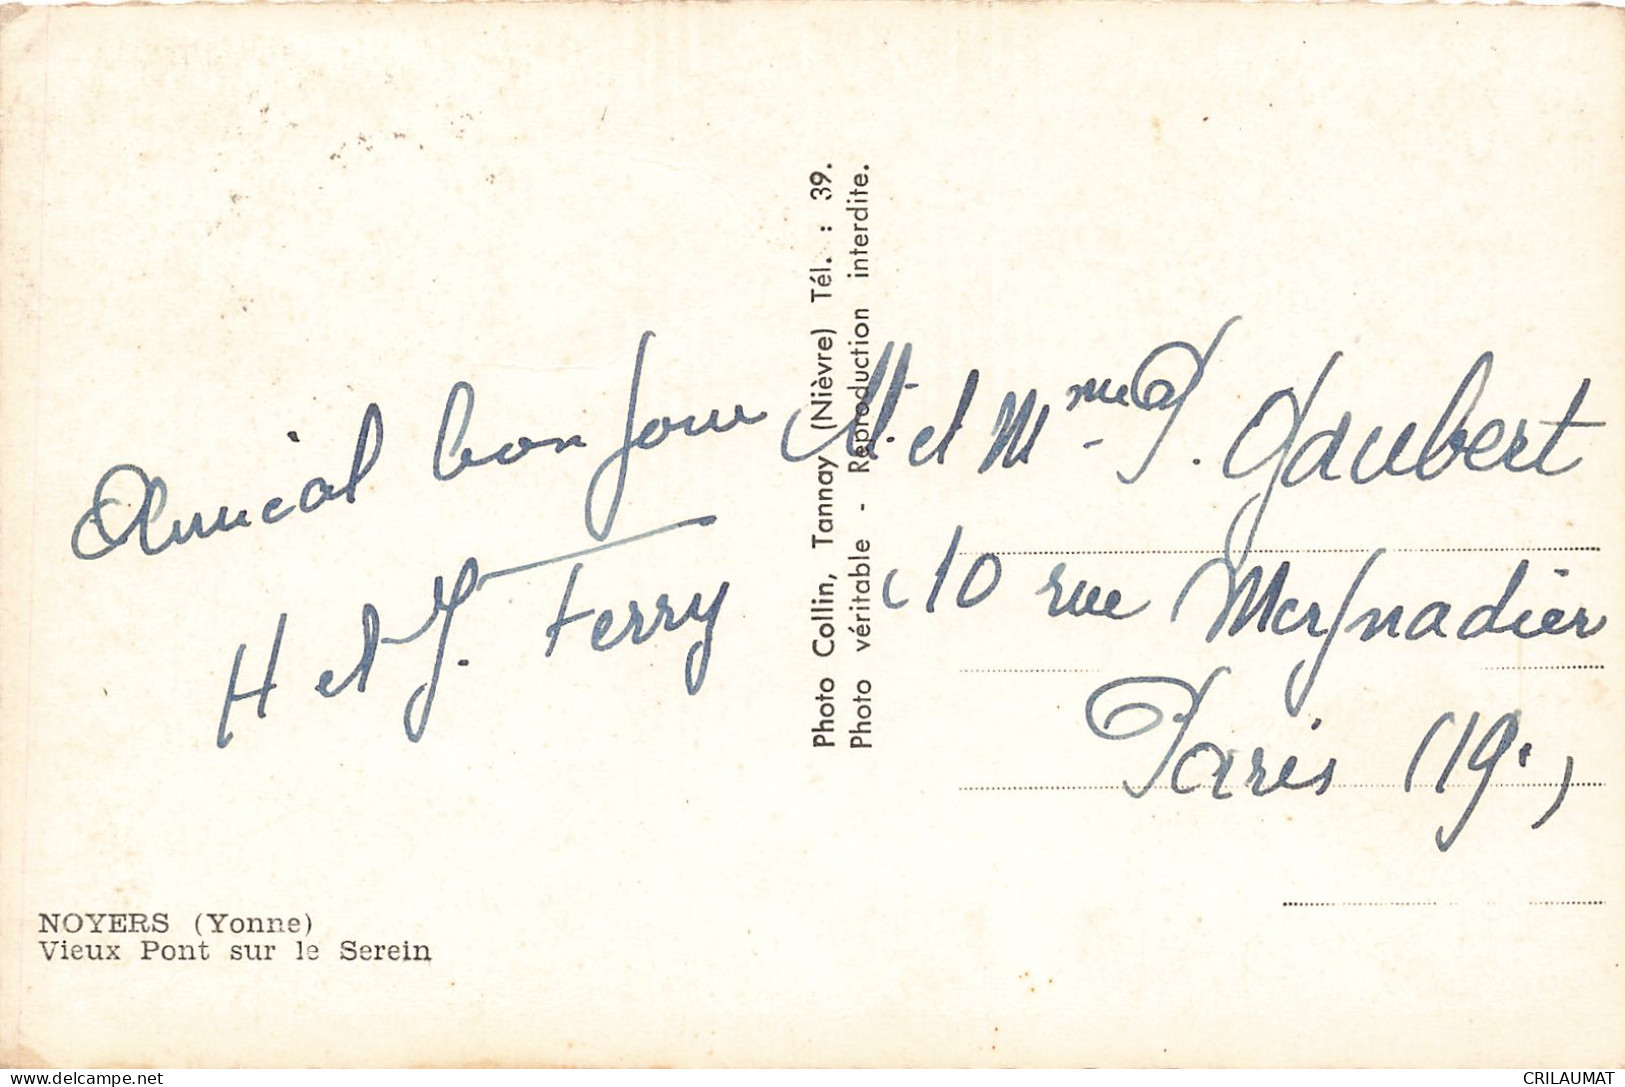 Amical bonjour
H et J. Ferry
NOYERS (Yonne)
Vieux Pont sur le Serein
Photo Collin, Tannay (Nièvre) Tél. : 39.
Photo véritable - Reproduction interdite.
M. et Mme P. Gaubert
10 rue Meynadier
Paris (19e)
delcampe.net
CRILAUMAT